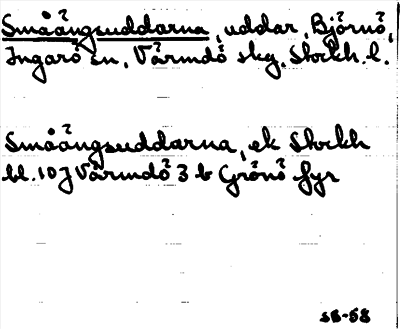 Småängsuddarna, uddar, Björnö,
Ingarö sn, Värmdö skg, Stockh. l.
Småängsuddarna, ek Stockh
bl. 10J Värmdö 3 b Grönö fyr
SB-58